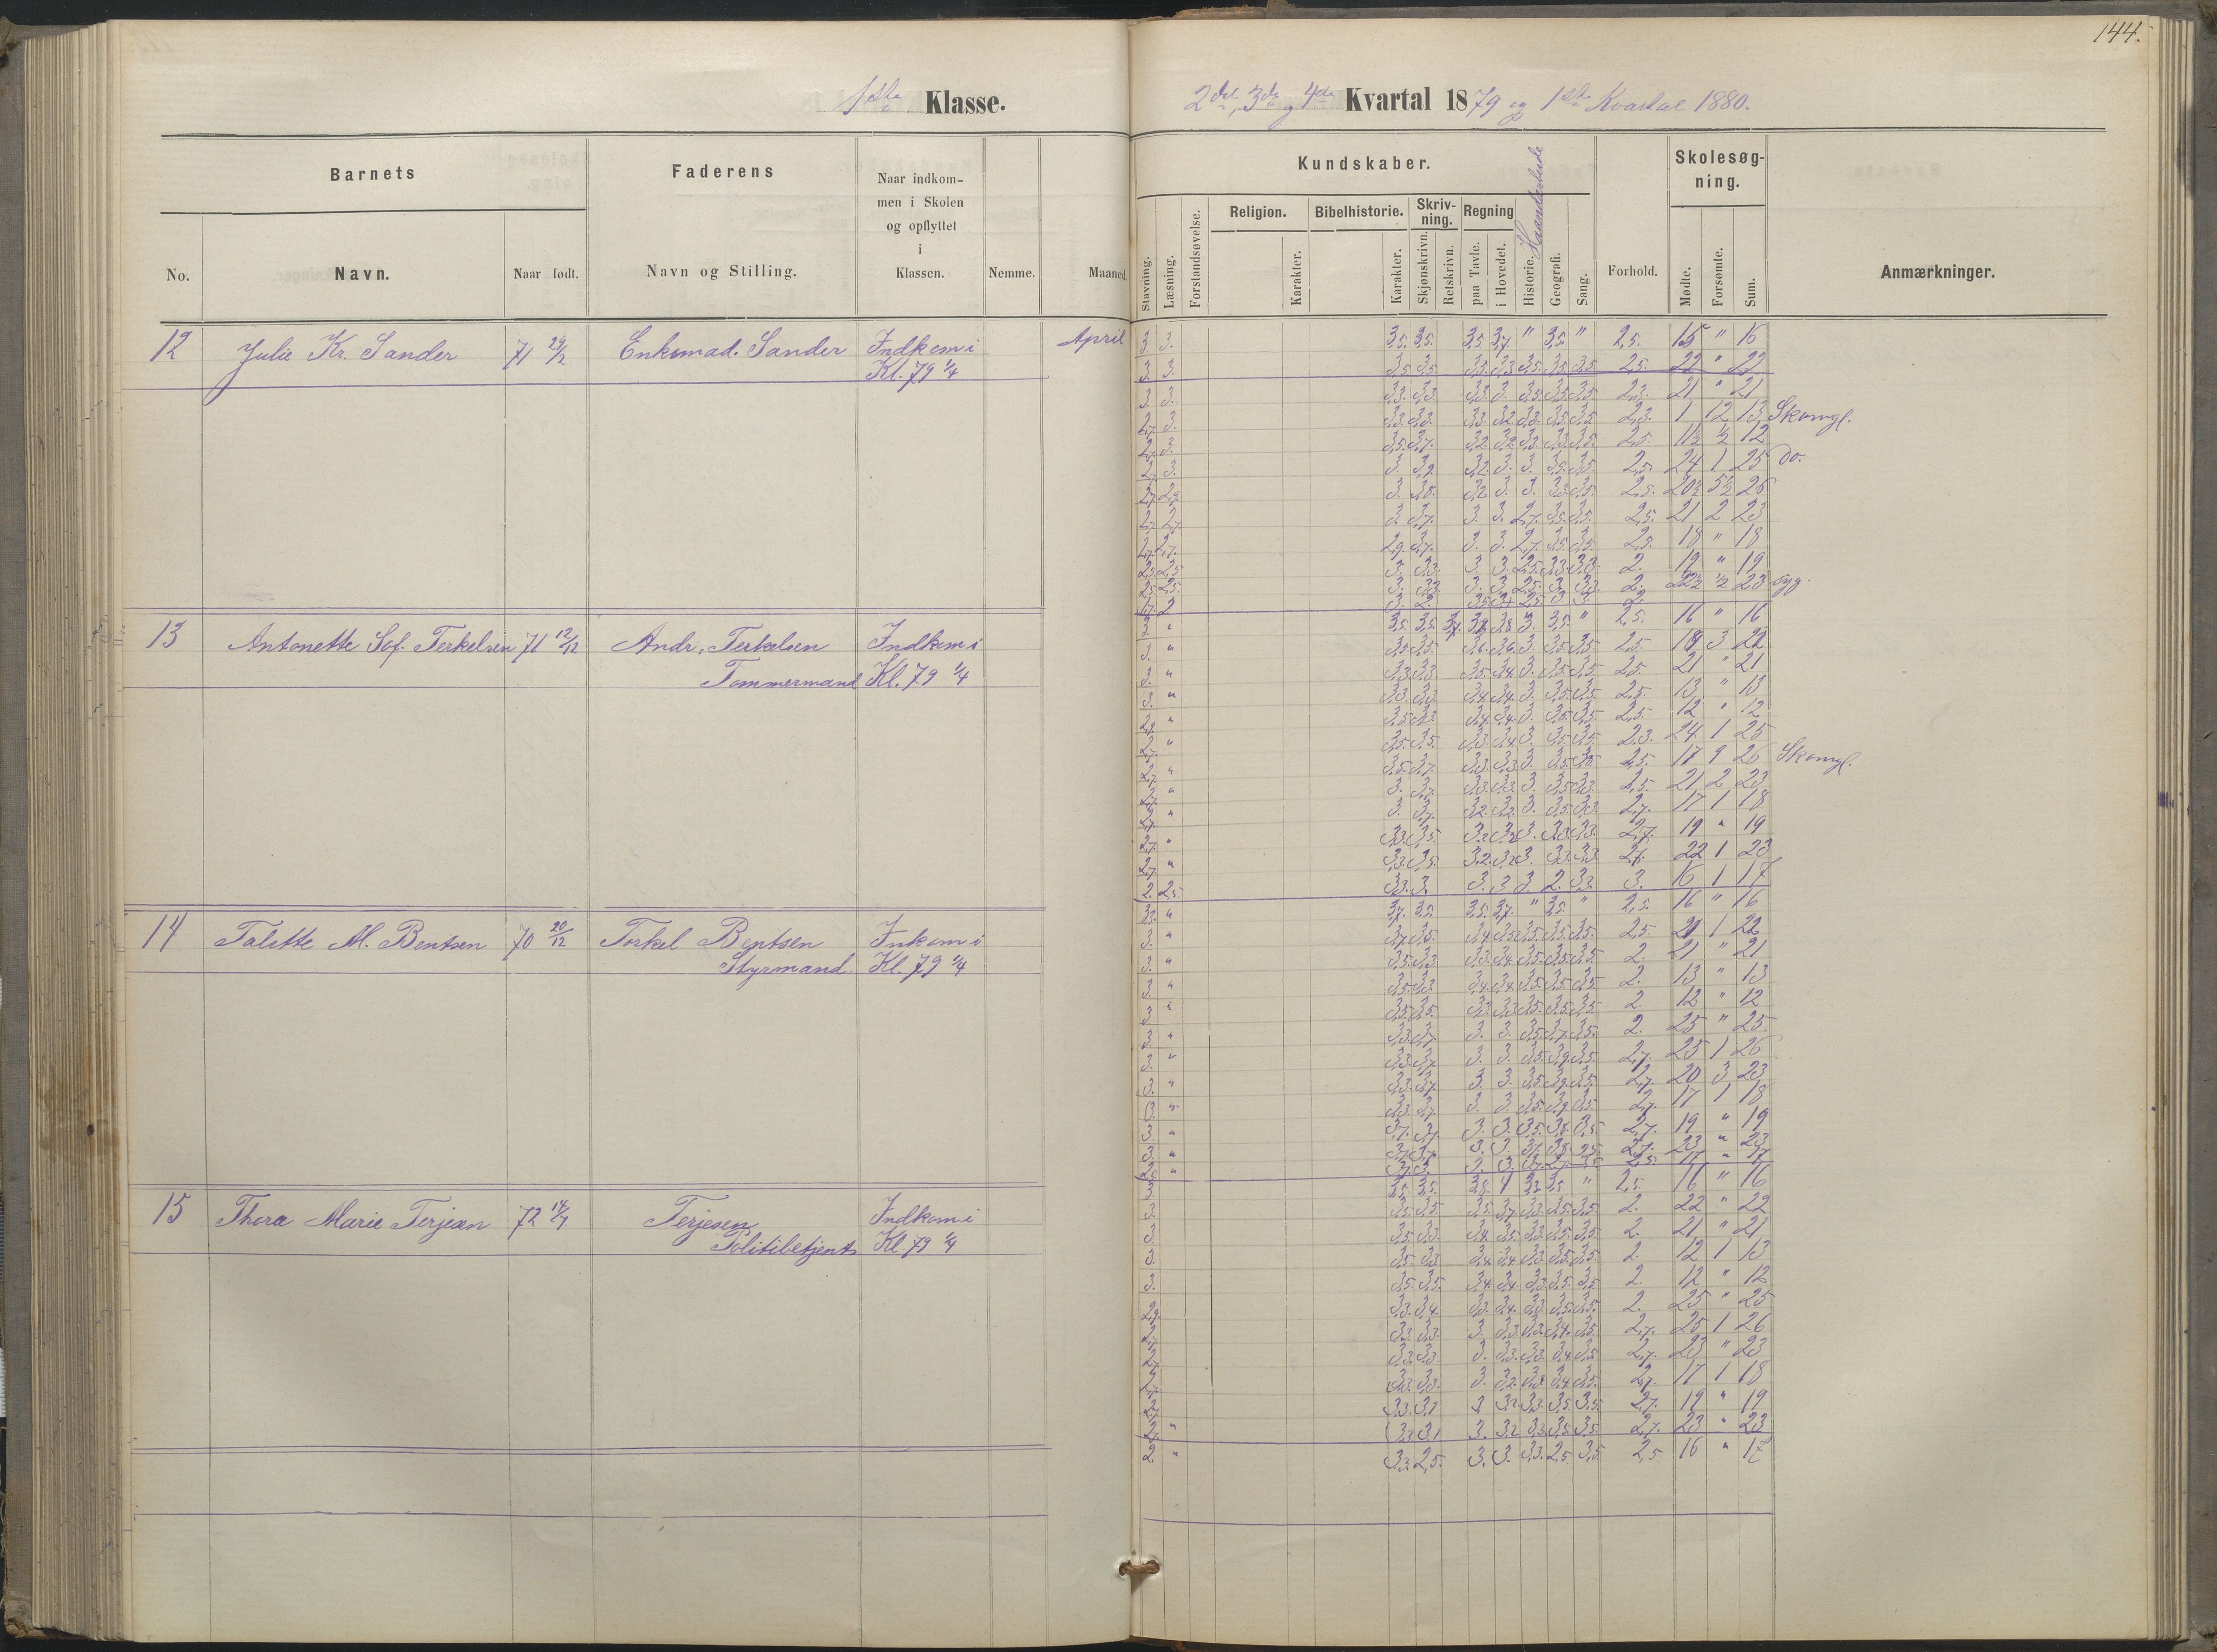 144.
1ste Klasse.
2det, 3de og 4de Kvartal 1879 og 1ste Kvartal 1880.
Barnets
Faderens
Naar indkom-
men i Skolen
og opflyttet
i
Klassen.
No.
Navn.
Naar født.
Navn og Stilling.
Nemme.
Maaned.
Kundskaber.
Stavning.
Læsning.
Forstandsøvelse.
Religion.
Karakter.
Bibelhistorie.
Karakter.
Skriv-
ning.
Skjønskrivn.
Retskrivn.
Regning
paa Tavle.
i Hovedet.
Historie. Haandarbeide
Geografi.
Sang.
Forhold.
Skolesøg-
ning.
Mødte.
Forsømte.
Sum.
Anmærkninger.
12 Julie Kr. Sander 71 29/2 Enkemad. Sander Indkom i
Kl. 79 1/4
April
3 3. 3,5. 3,5. 3,5 3,7. " 3,5. " 2,5. 15 " 16
3. 3. 3,5 3,5 3,5. 3,3 3,5. 3,5 3,5 2,5. 22 " 22
3. 3. 3,3. 3,3 3,3 3. 3,5. 3,5. 3,5 2,3. 21 " 21
2,7. 3. 3,3. 3,3. 3,3. 3,2. 3,3. 3,5. 3,5 2,3. 1 12 13 Skomgl.
2,7. 3. 3,5. 3,7. 3,2. 3,2. 3,3. 3,3. 3,5. 2,5. 11½ ½ 12
2,7. 3. 3. 3,9. 3,2. 3. 3. 3,5. 3,5. 2,5. 24 1 25 do.
2,7. 2,9. 3. 3,8. 3,2 3. 3. 3,3. 3,5. 2,5. 20½ 5½ 26
2,7. 2,7. 3. 3,7. 3. 3. 2,7. 3,5. 3,5. 2,5. 21 2 23
2,7. 2,7. 2,9. 3,7. 3. 3. 2,7. 3,5. 3,5. 2,5. 18 " 18
2,5. 2,5. 3. 3,3. 3. 3. 2,5. 3,3. 3,3. 2. 19 " 19
2,5. 2,5. 3. 3,3. 3. 3. 2,5. 3. 3,3. 2. 22½ ½ 23 syg.
13 Antonette Sof. Terkelsen 71 12/12 Andr. Terkelsen Indkom i
Tømmermand Kl. 79 1/4
3. " 3,5. 3,5. 3,7. 3,8. 3,8. 3. 3,5. " 2,5. 16 " 16
3. " 3,5. 3,5. 3,6. 3,6. 3. 3,5. 3,5. 2,5. 19 3 22
3. " 3,3. 3,3 3,5. 3,4. 3. 3,5. 3,5. 2,5. 21 " 21
3. " 3,3. 3,3. 3,4. 3,4. 3. 3,5. 3,5. 2,5. 13 " 13
2,9. " 3,5. 3,3. 3,4. 3,4. 3. 3,5. 3,5. 2,5. 12 " 12
2,7. " 3,5. 3,5. 3,3. 3,4. 3. 3,5. 3,5. 2,3. 24 1 25
2,7. " 3,5. 3,7. 3,3. 3,3. 3. 3,5. 3,5. 2,5. 17 9 26 Skomgl.
2,7. " 3. 3,7. 3,3. 3,3. 3. 3,5. 3,3. 2,5. 21 2 23
2,7. " 3. 3,7. 3,2. 3,2. 3. 3,5. 3,3. 2,7. 17 1 18
2,7. " 3,3. 3,5. 3,2. 3,2 3. 3,3. 3,3. 2,7. 19 " 19
2,7. " 3,3. 3,5. 3,2. 3,2 3. 3,3. 3,3. 2,7. 22 1 23
2. 2,5. 3,3. 3. 3. 3 3. 2. 3,3. 3. 16 1 17
14 Talette M. Bentsen 70 20/12 Torkel Bentsen Inkom i
Styrmand. Kl. 79 1/4
" 3,7. 3,5. 3,5. 3,7. " 3,5. " 2,5. 16 " 16
3. " 3,7. 3,5. 3,4. 3,5. 3,5. 3,5. 3,5. 2,5. 21 1 22
3. " 3,5. 3,3. 3,3. 3,4. 3,5. 3,5. 3,5. 2. 21 " 21
3. " 3,5. 3,3 3,4. 3,4. 3,5. 3,5. 3,5 2. 13 " 13
3 " 3,5. 3,5. 3,3. 3,3. 3,5. 3,5. 3,5. 2. 12 " 12
3. " 3,3. 3,7. 3. 3. 3,5. 3,7. 3,5. 2. 25 " 25
3. " 3,3. 3,7. 3. 3. 3,5. 3,9. 3,5. 2,7. 25 1 26
3. " 3,3. 3,7. 3. 3. 3,5. 3,9. 3,5. 2,7. 20 3 23
3. " 3,3. 3,7. 3. 3. 3,5. 3,9. 3,5. 2,7. 17 1 18
3. " 3,7. 3,7. 3. 3. 3,5. 3,8. 3,5. 2,7. 19 " 19
3. " 3,7. 3,7. 3. 3. 3,7. 3,8. 3,5 2,7. 23 " 23
15 Thora Marie Terjesen 72 14/7 Terjesen, Indkom i
Politibetjent Kl 79 1/4
3. 3,5. 3,5. 3,8. 4 3,3. 3,5 " 2,5. 16 " 16
3. 3,5. 3,5. 3,5. 3,7. 3,3. 3,5. 3,5. 2. 22 " 22
3. 3,5. 3,3. 3,4. 3,5. 3,3. 3,5. 3,5. 2. 21 " 21
3. 3,5. 3,3 3,4. 3,4. 3,3. 3,5. 3,5 2. 12 1 13
3. 3,5. 3,5. 3,4. 3,4. 3,3. 3,5. 3,5 2. 12 " 12
2,9. 3,3. 3,4. 3,3. 3,4. 3,3. 3,5. 3,5. 2. 25 " 25
2,7. 3,3. 3,3. 3. 3,3. 3,3. 3,4. 3,5. 2,7. 25 1 26
2,7. 3,3. 3,3. 3. 3,3. 3,3. 3,4. 3,5 2,7. 23 " 23
2,7. 3,3. 3,3. 3. 3,2. 3,3. 3,4. 3,5. 2,7. 17 1 18
2,7. 3,3. 3,1 3 3,2 3,3. 3,5. 3,5. 2,7. 19 " 19
2,7. " 3,3. 3,1 3. 3,2 3,3. 3,5. 3,5 2,7. 23 " 23
2. " 3,3. 2,5. 3. 3. 3,3. 2,5 3,5 2,5. 16 " 17